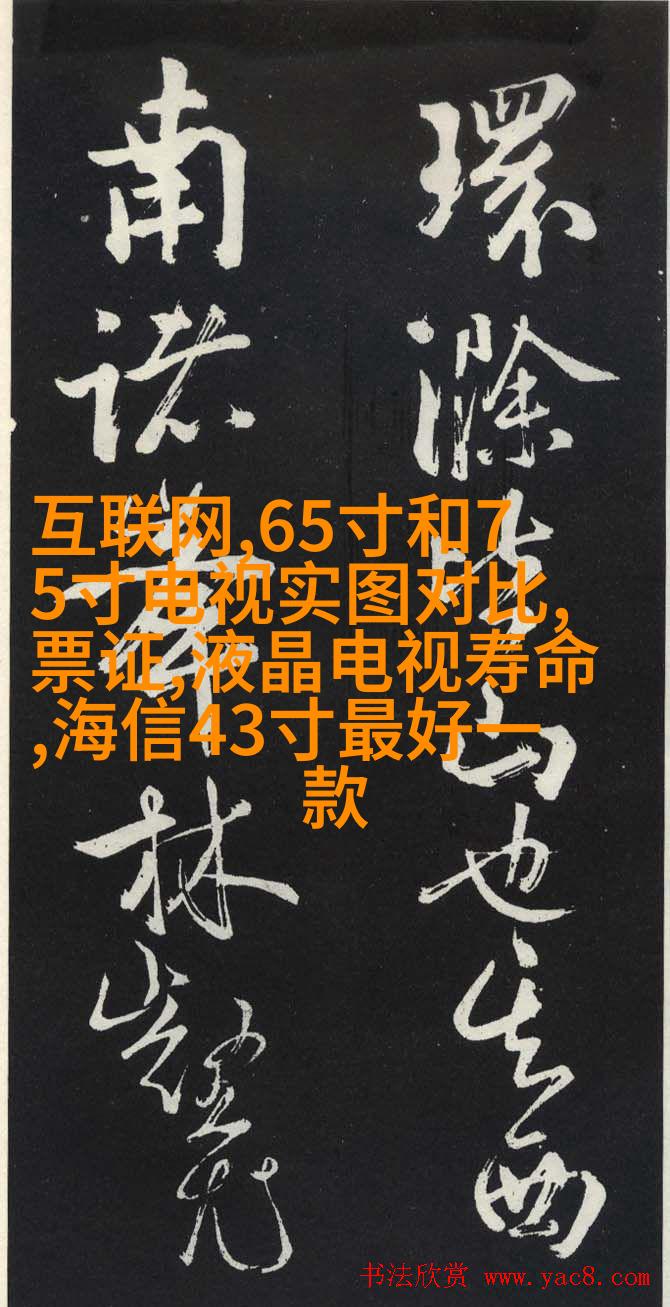 環滁皆山也其西
南諸峯林壑尤
互联网,65寸和7
5寸电视实图对比,
票证,液晶电视寿命
,海信43寸最好一
款
书法欣赏 www.yac8.com